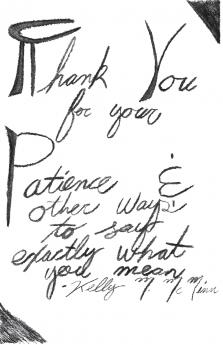 Thank You
for your
Patience &
other ways
to say
exactly what
you mean
- Kelly M. McMinn